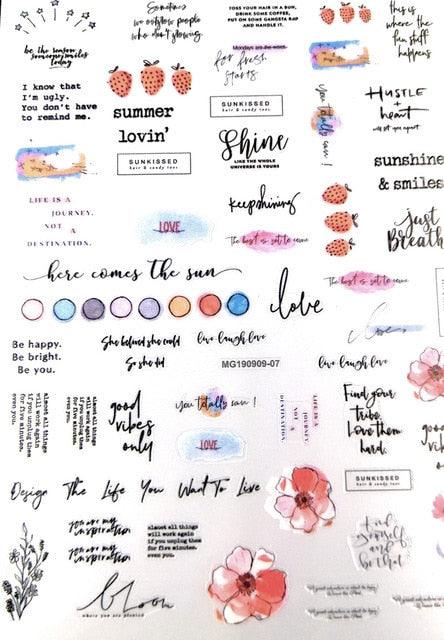 Sometimes
we outgrow people
who aren't growing.
TOSS YOUR HAIR IN A BUN,
DRINK SOME COFFEE,
PUT ON SOME GANGSTA RAP
AND HANDLE IT.
this is
where the
fun stuff
happens
be the reason
someone smiles
today
Mondays are the worst
for fresh
starts
I know that
I'm ugly.
You don't have
to remind me.
summer
lovin'
SUNKISSED
hair & sandy toes
SUNKISSED
hair & sandy toes
Shine
LIKE THE WHOLE
UNIVERSE IS YOURS
you totally can!
HUSTLE
+
heart
will set you apart
sunshine
& smiles
LIFE IS A
JOURNEY,
NOT A
DESTINATION.
LOVE
keep shining
The best is yet to come
just
Breathe
here comes the sun
The best is yet to come
love
love
Be happy.
Be bright.
Be you.
She believed she could
So she did
live laugh love
MG190909-07
live laugh love
almost all things
will work again
if you unplug them
for five minutes.
even you.
almost all things
will work again
if you unplug them
for five minutes.
even you.
good
vibes
only
you totally can!
LOVE
LIFE IS A
JOURNEY,
NOT A
DESTINATION.
Find your
tribe.
Love them
hard.
good
vibes
Design The Life You Want To Live
SUNKISSED
hair & sandy toes
you are my
inspiration
you are my
inspiration
almost all things
will work again
if you unplug them
for five minutes.
even you.
Find
yourself
and
be that
bloom
where you are planted